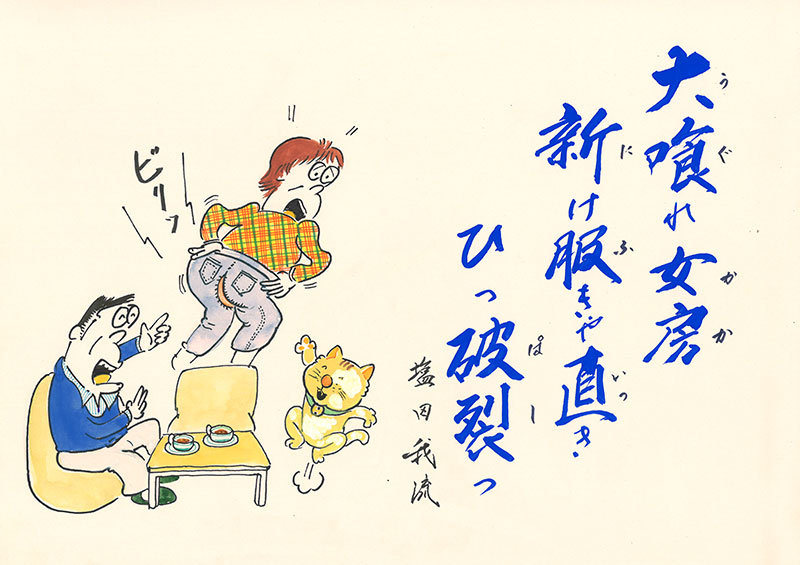 大喰れ女房
うぐ かか
新け服きゃ直き
に ふ いっ
ひっ破裂っ
ぱし
塩田我流
ビリッ